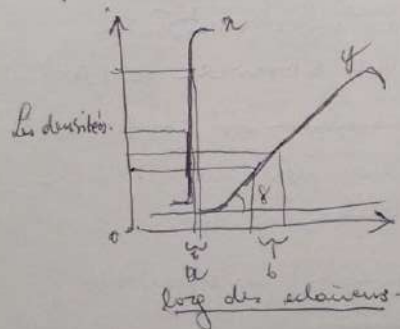 x
y
Les densités.
γ
o
a
b
log des eclairems.